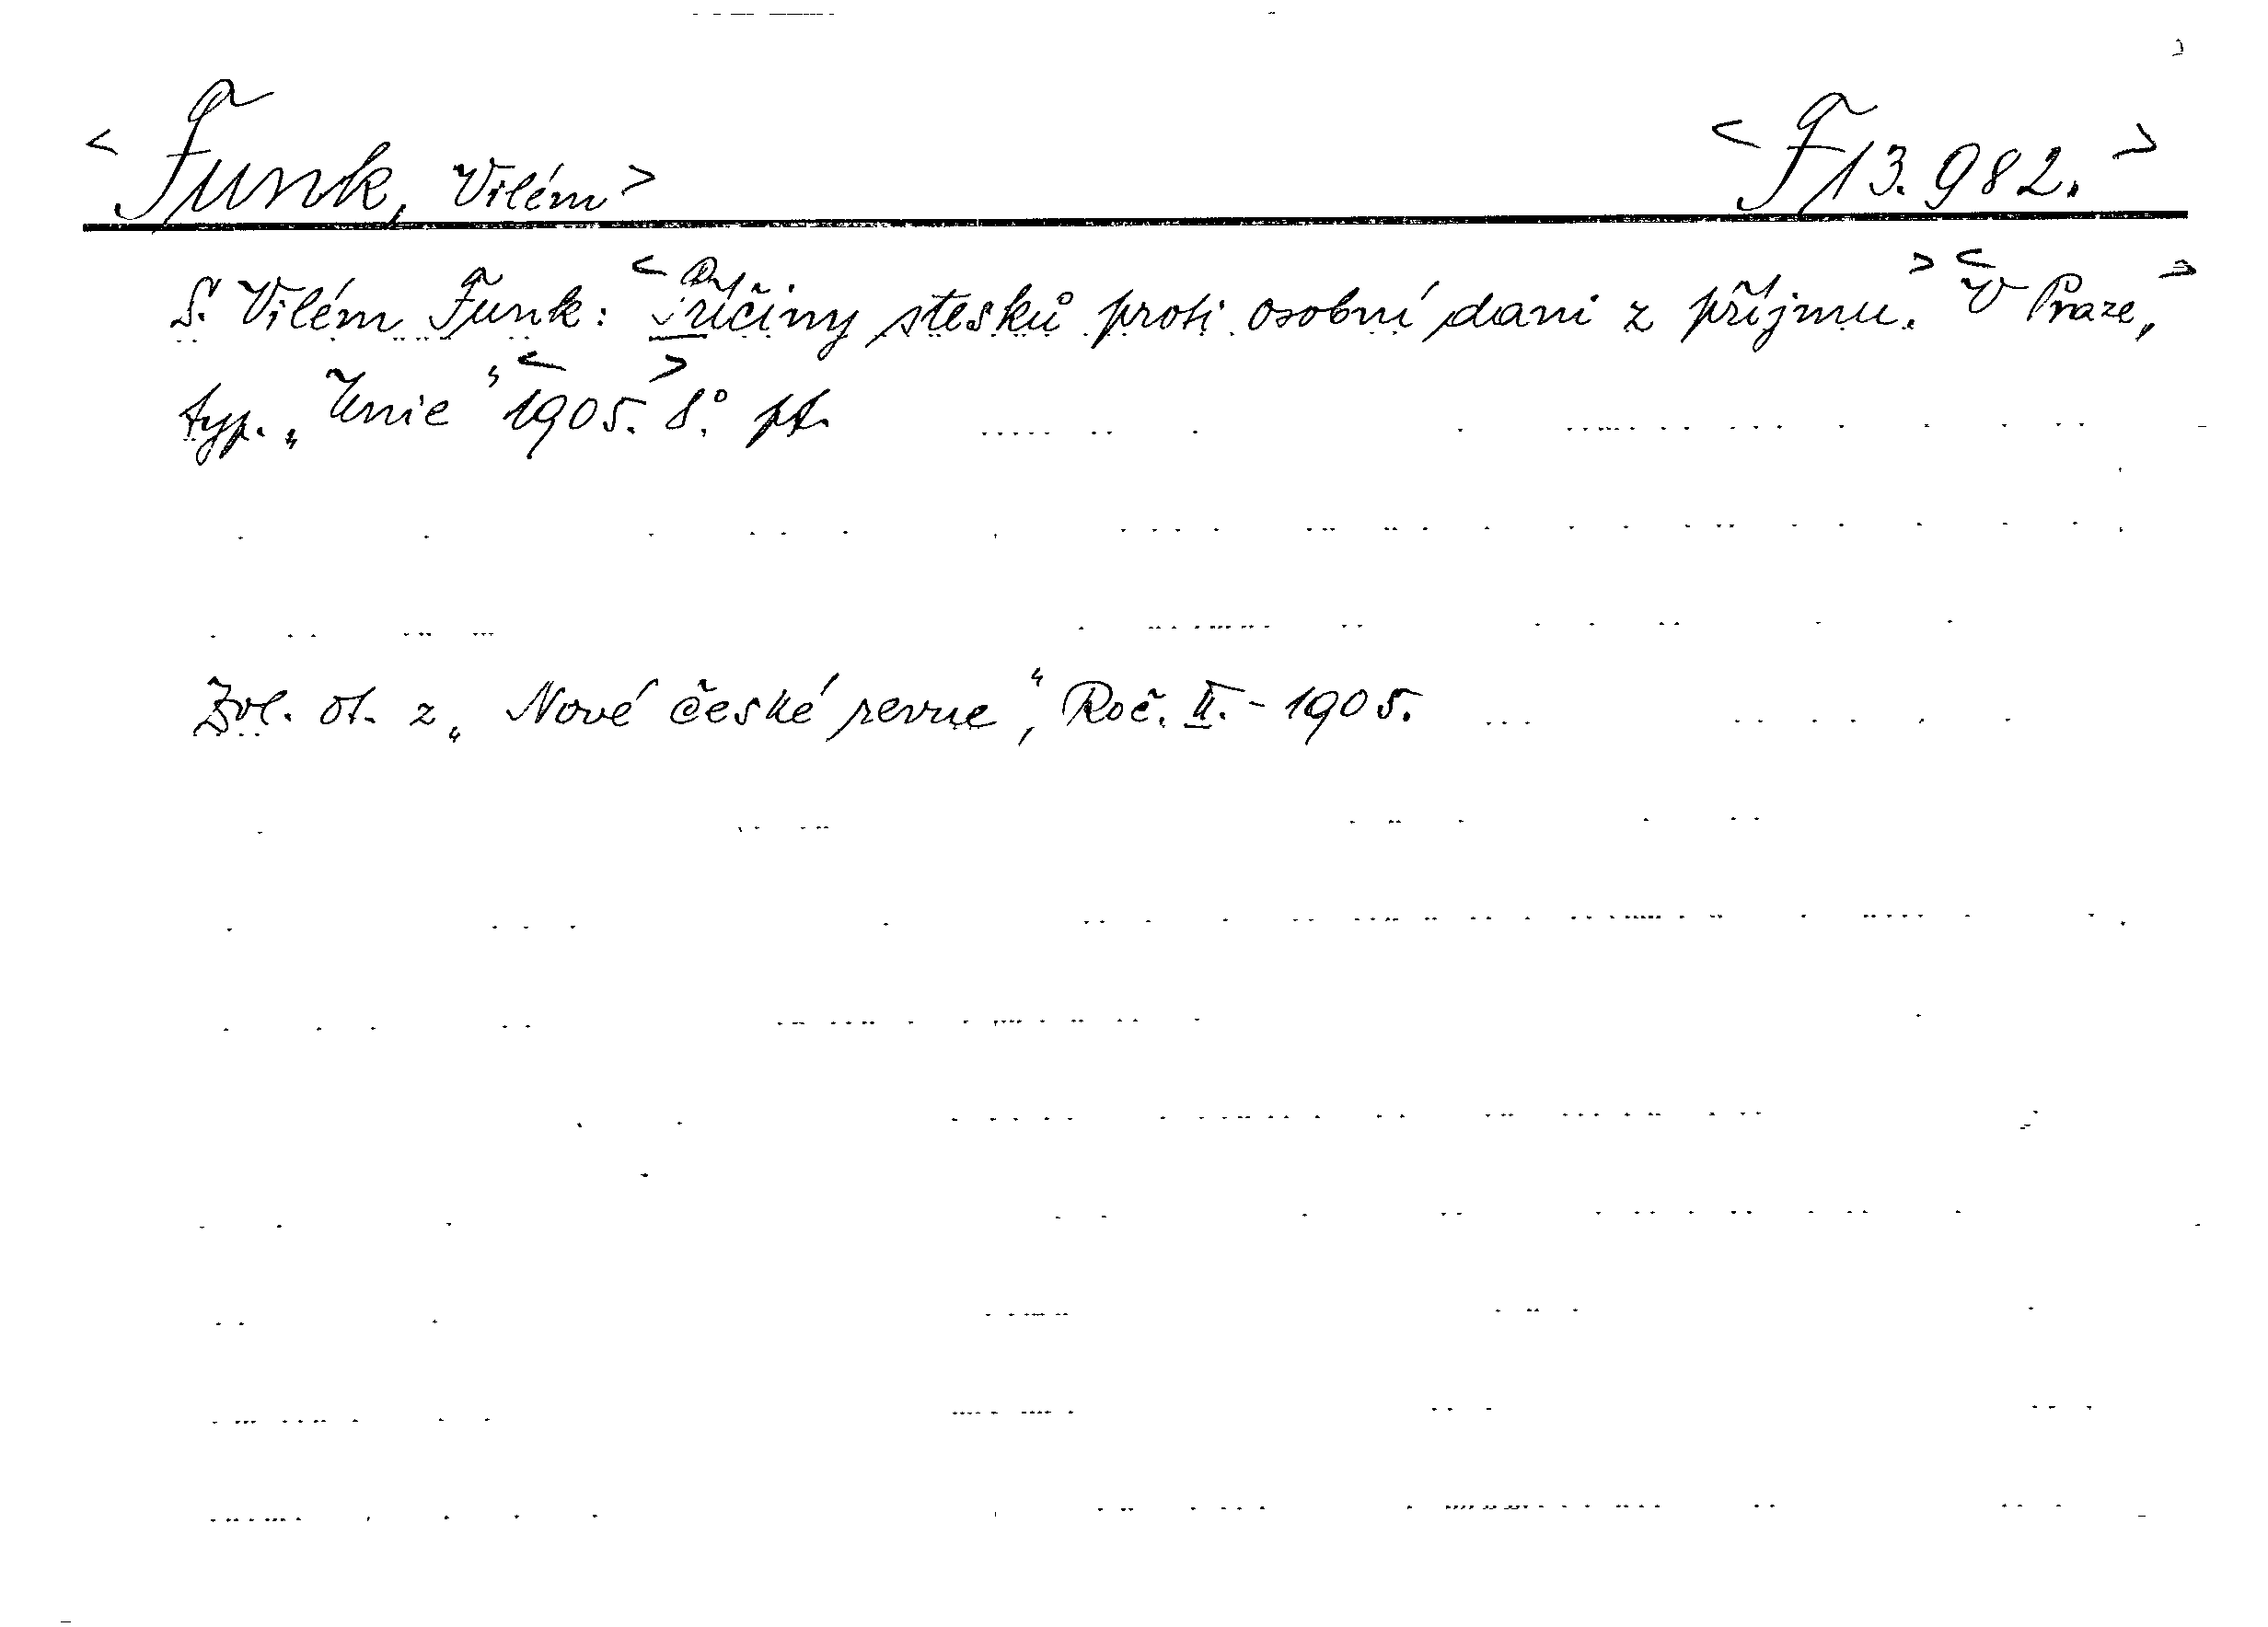 < Funk, Vilém > < F 13.982. >
S. Vilém Funk: < Příčiny stesků proti osobní dani z příjmu. > < V Praze, >
typ. „Unie“ < 1905. > 8.° pt.
Zvl. ot. z „Nové české revue“, Roč. II. - 1905.